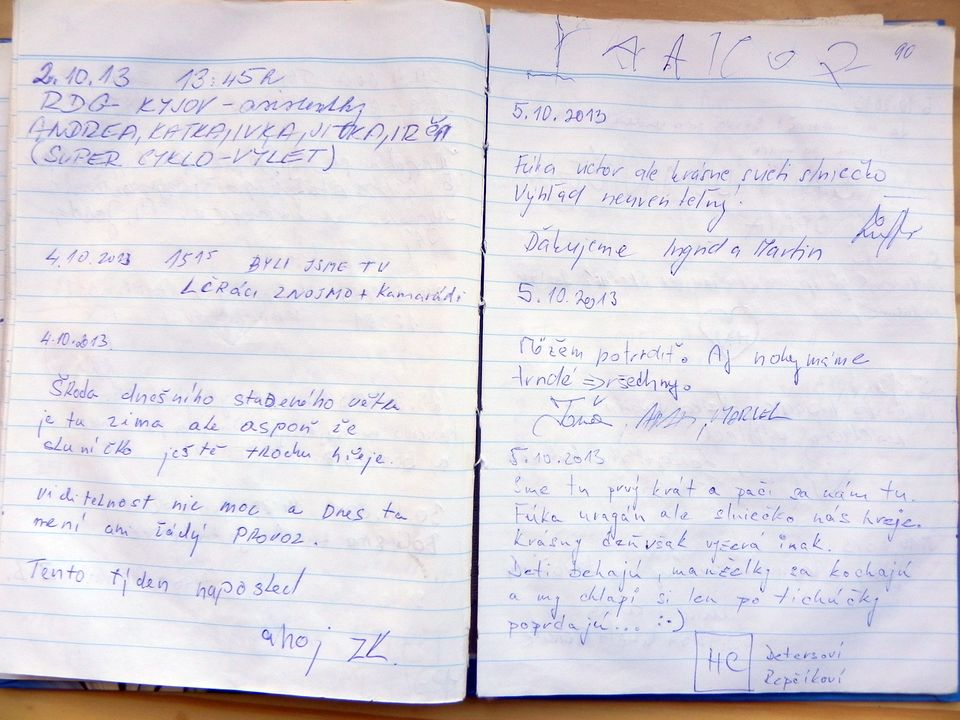 2.10.13 13:45h
RDG - KYJOV - asistentky
ANDREA, KATKA, IVKA, JITKA, IRČA
(SUPER CYKLO-VÝLET)
4.10.2013 15¹⁵ BYLI JSME TU
LČRáci ZNOJMO + Kamarádi
4.10.2013.
Škoda dnešního studeného větru
je tu zima ale aspoň že
sluníčko ještě trochu hřeje.
viditelnost nic moc a Dnes tu
není ani žádý PROVOZ.
Tento týden naposled
ahoj ZK.
90
5.10.2013
Fúka vietor ale krásne svieti slniečko
Výhľad neuveriteľný!
Ďakujeme Ingrid a Martin
5.10.2013
Môžem potvrdiť. Aj nohy máme
tvrdé => všechny.
5.10.2013
Sme tu prvý krát a páči sa nám tu.
Fúka uragán ale slniečko nás hreje.
Krásny džúvšak vyzerá inak.
Deti behajú, manželky sa kochajú
a my chlapi si len po tichúčky
poprdajú... :-)
HC Detersoví
Repčíkoví